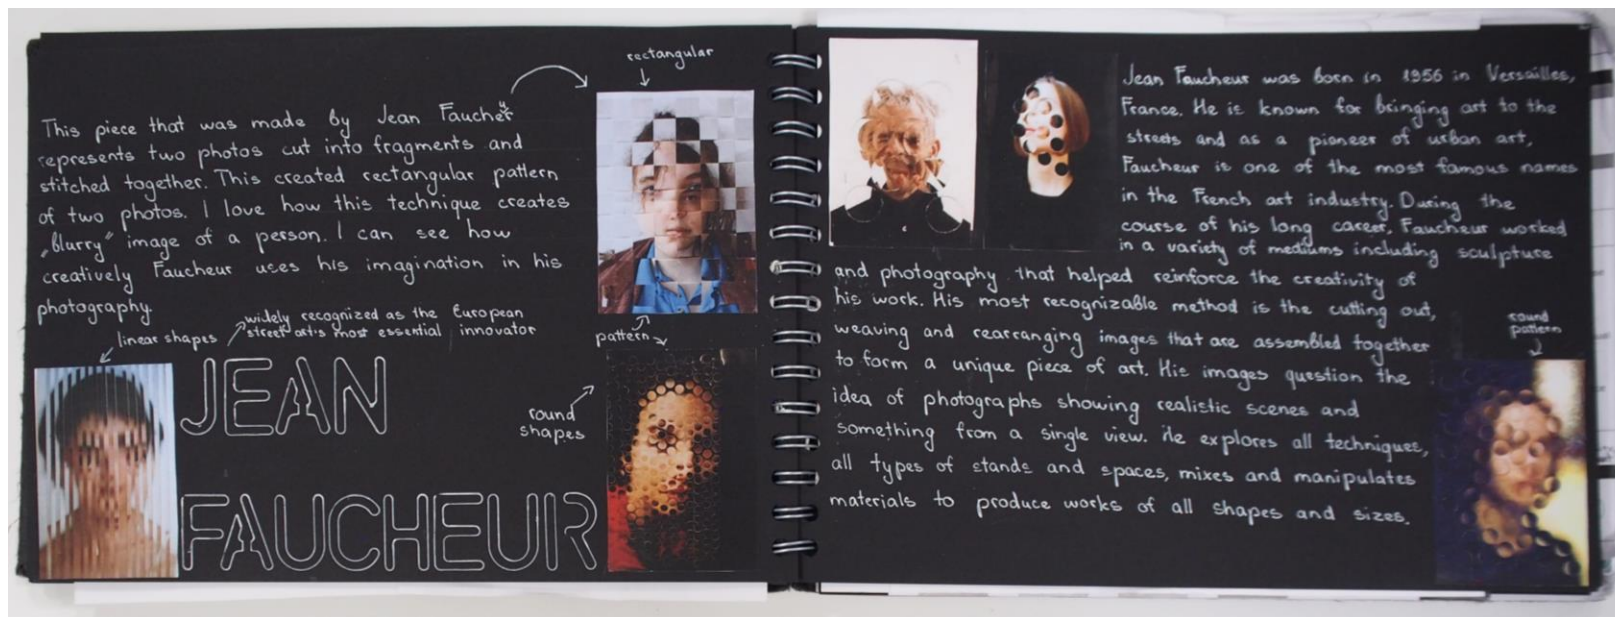 rectangular
This piece that was made by Jean Faucheur
represents two photos cut into fragments and
stitched together. This created rectangular pattern
of two photos. I love how this technique creates
„blurry” image of a person. I can see how
creatively Faucheur uses his imagination in his
photography.
widely recognized as the European
street art's most essential innovator
linear shapes
pattern
JEAN
round
shapes
FAUCHEUR
Jean Faucheur was born in 1956 in Versailles,
France. He is known for bringing art to the
streets and as a pioneer of urban art,
Faucheur is one of the most famous names
in the French art industry. During the
course of his long career, Faucheur worked
in a variety of mediums including sculpture
and photography that helped reinforce the creativity of
his work. His most recognizable method is the cutting out,
weaving and rearranging images that are assembled together
to form a unique piece of art. His images question the
idea of photographs showing realistic scenes and
something from a single view. He explores all techniques,
all types of stands and spaces, mixes and manipulates
materials to produce works of all shapes and sizes.
round
pattern